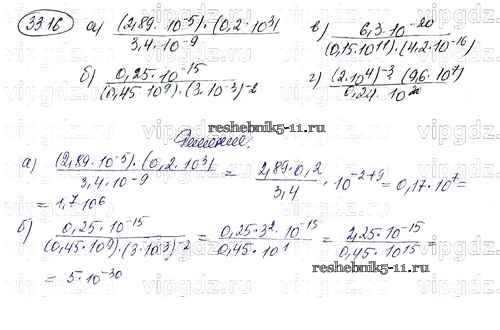 33.16 а) (2,89·10^-5)·(0,2·10^3) / 3,4·10^-9 в) 6,3·10^-20 / (0,15·10^11)·(4,2·10^-16)
б) 0,25·10^-15 / (0,45·10^9)·(3·10^-3)^-2 г) (2·10^4)^-3·(9,6·10^7) / 0,24·10^20
reshebnik5-11.ru
Решение.
а) (2,89·10^-5)·(0,2·10^3) / 3,4·10^-9 = 2,89·0,2 / 3,4 · 10^-2+9 = 0,17·10^7 =
= 1,7·10^6
б) 0,25·10^-15 / (0,45·10^9)·(3·10^-3)^-2 = 0,25·3^2·10^-15 / 0,45·10^1 = 2,25·10^-15 / 0,45·10^15 =
reshebnik5-11.ru
= 5·10^-30